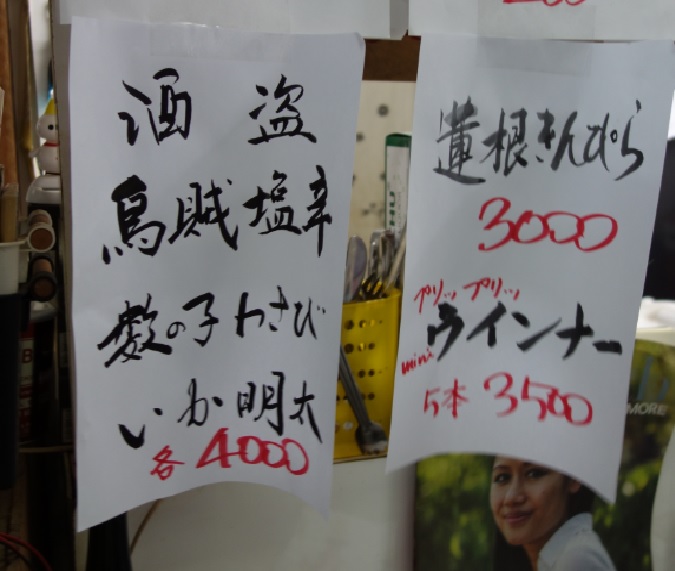 酒盗
烏賊塩辛
数の子わさび
いか明太
各4000
蓮根きんぴら
3000
プリップリッ
mini ウインナー
5本 3500
MORE